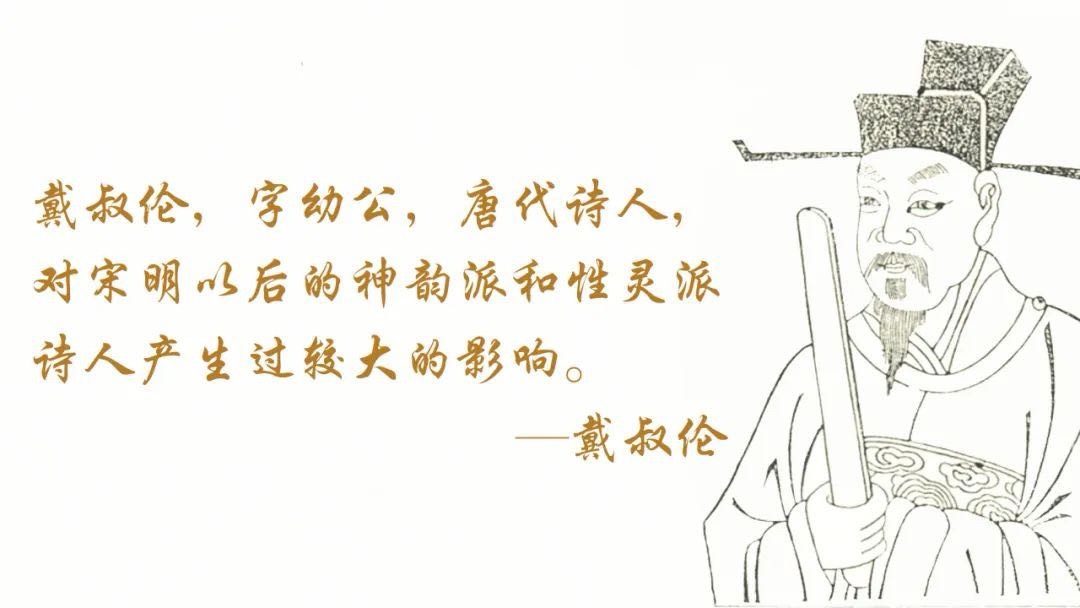 戴叔伦，字幼公，唐代诗人，
对宋明以后的神韵派和性灵派
诗人产生过较大的影响。
—戴叔伦